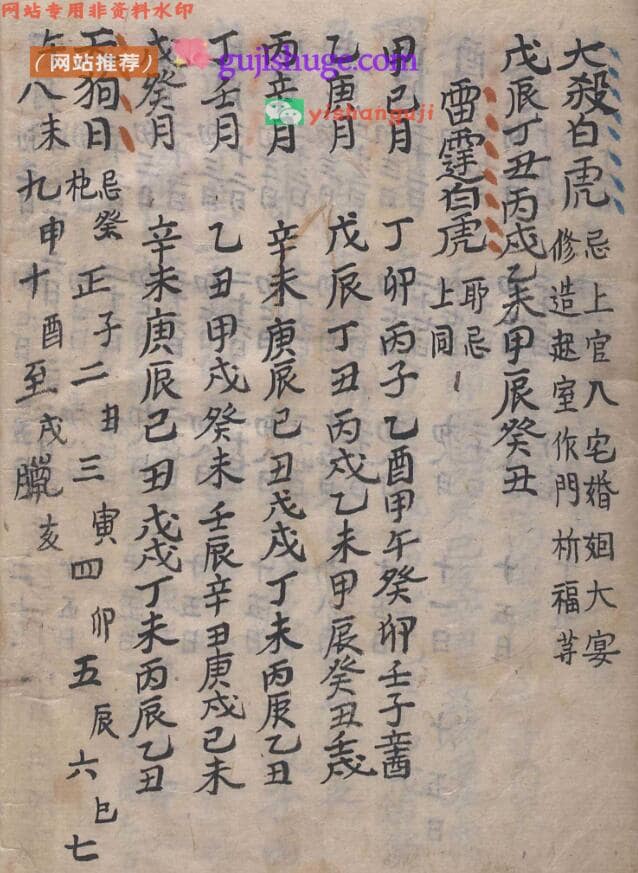 网站专用非资料水印
（网站推荐）
gujishuge.com
yishanguji
大殺白虎
忌上官入宅婚姻大宴
修造起室作門祈福等
戊辰丁丑丙戌乙未甲辰癸丑
雷霆白虎
耶忌
上同
甲己月 丁卯丙子乙酉甲午癸卯壬子辛酉
乙庚月 戊辰丁丑丙戌乙未甲辰癸丑壬戌
丙辛月 辛未庚辰己丑戊戌丁未丙辰乙丑
丁壬月 乙丑甲戌癸未壬辰辛丑庚戌己未
戊癸月 辛未庚辰己丑戊戌丁未丙辰乙丑
狗日 忌祭祀 正子二丑三寅四卯五辰六巳七
午八未九申十酉至戌臘亥